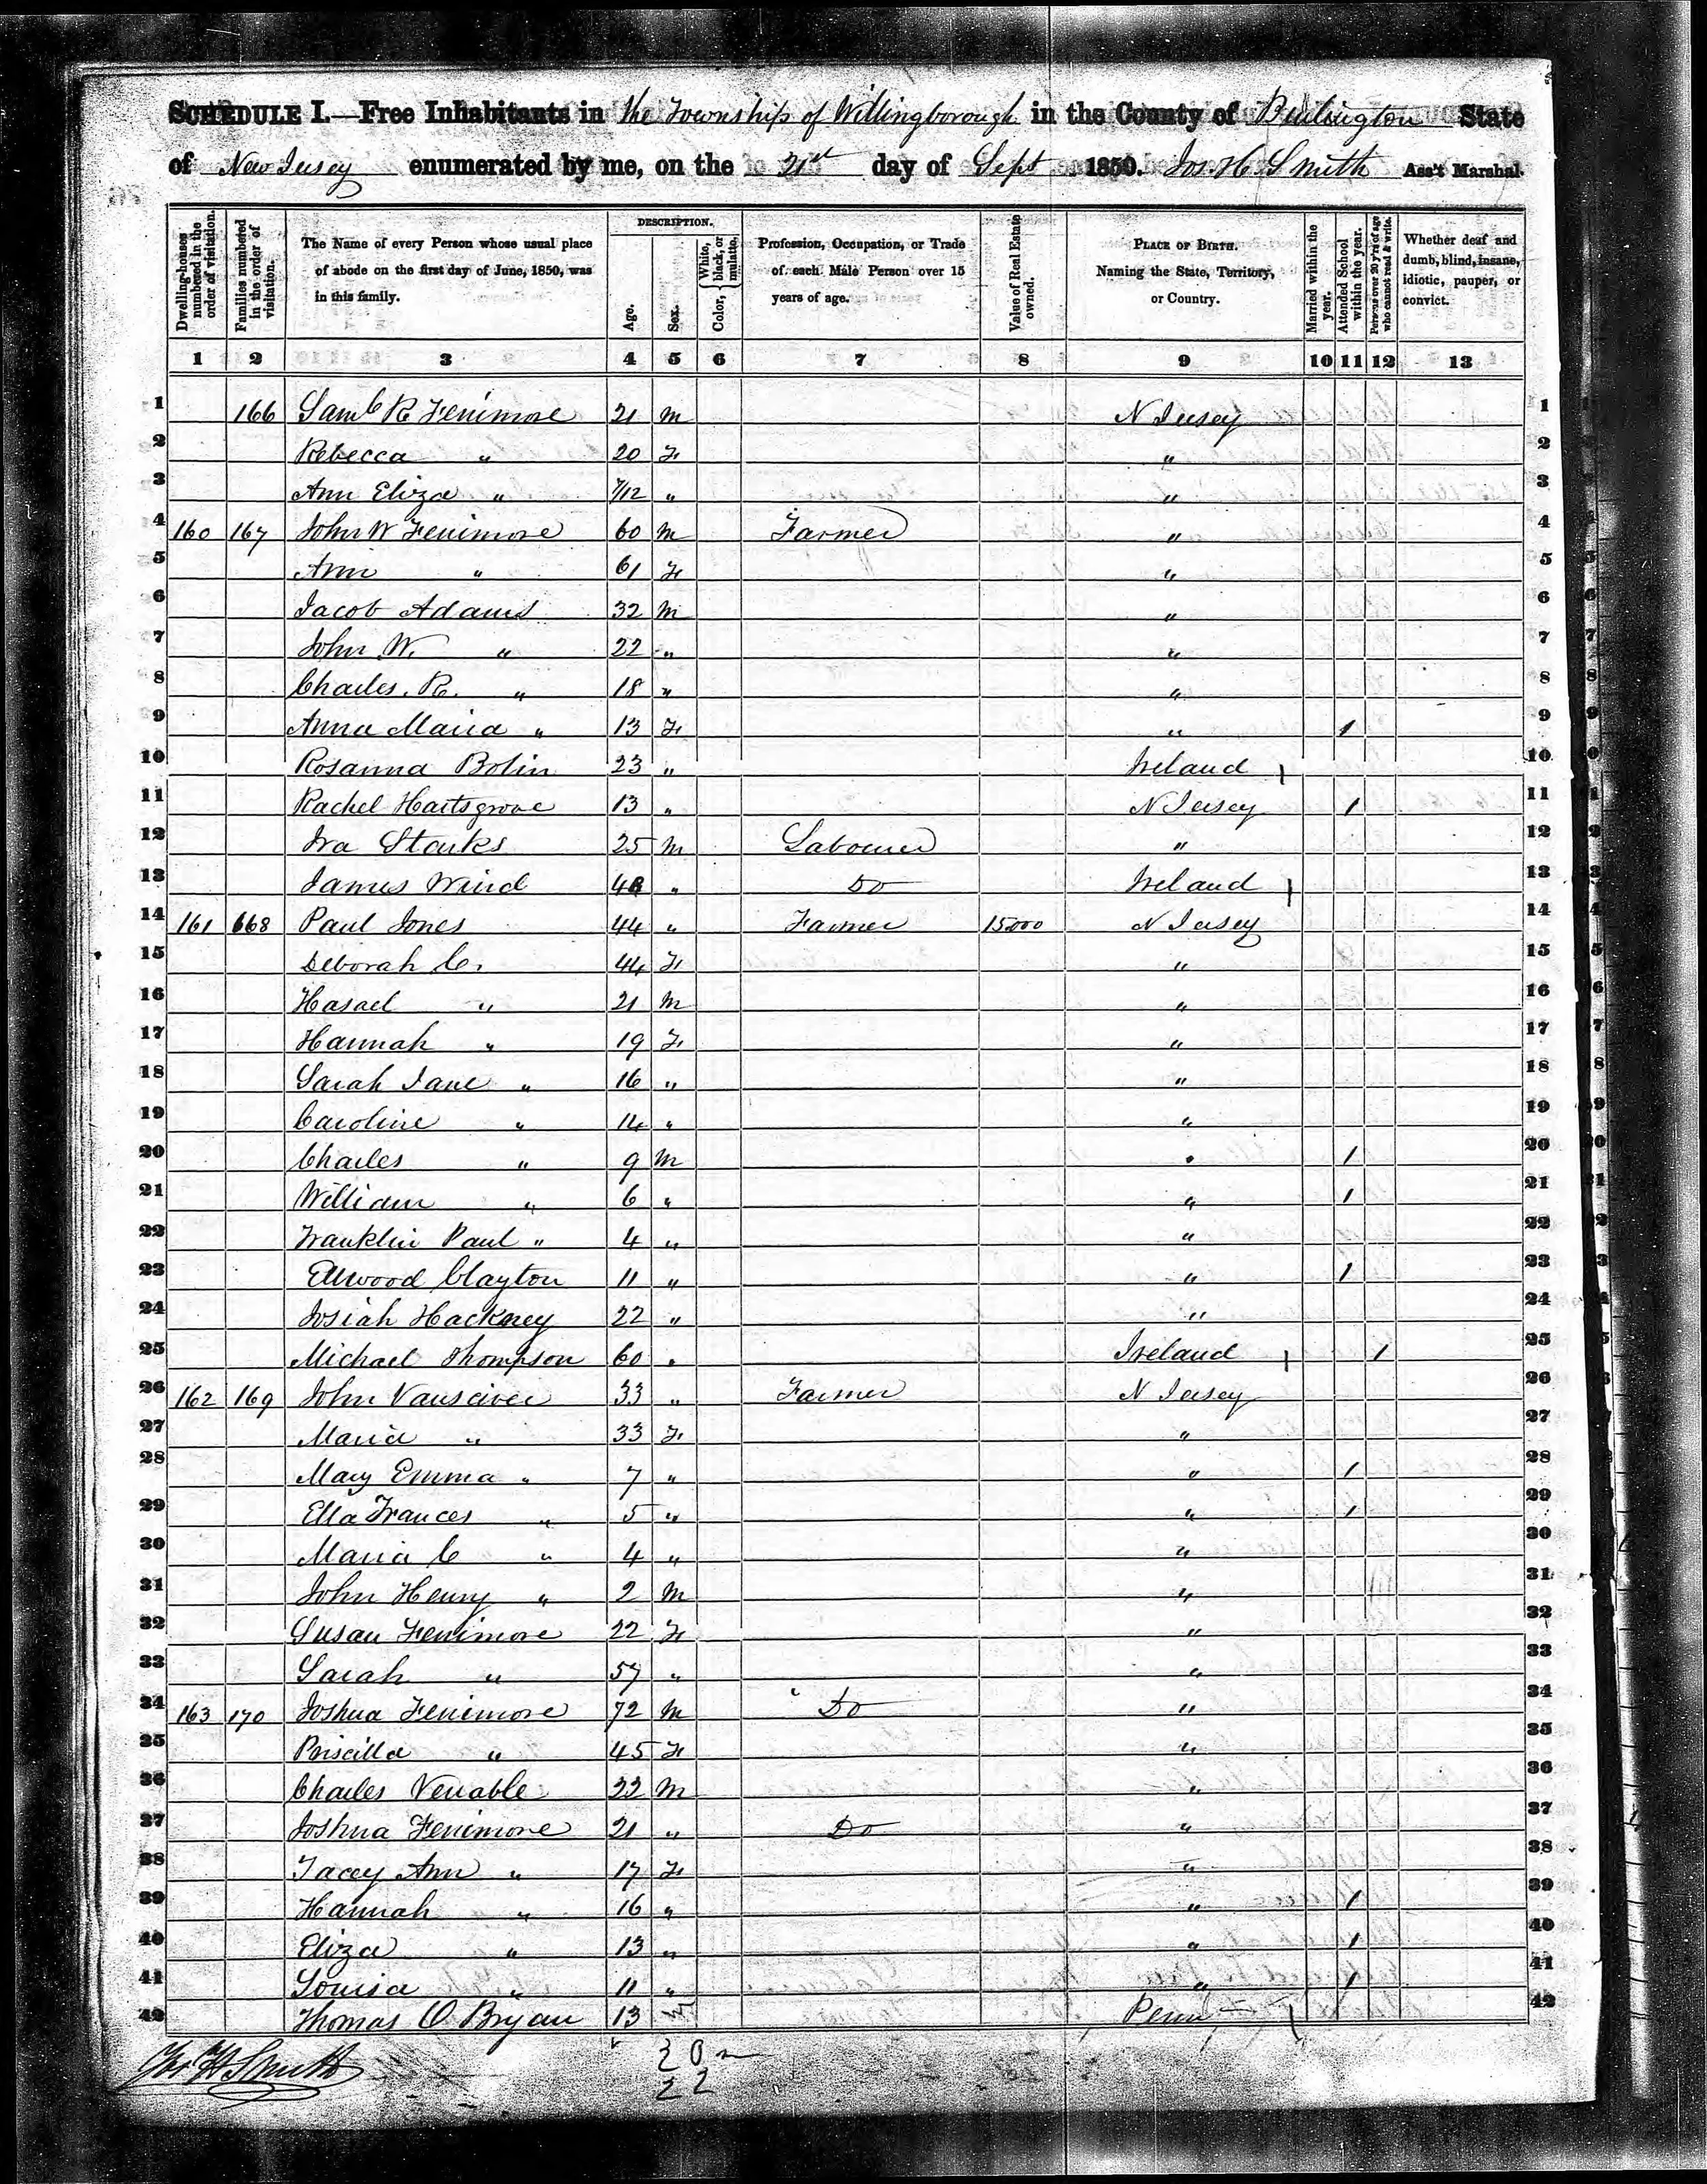 SCHEDULE I.—Free Inhabitants in the Township of Willingborough in the County of Burlington State
of New Jersey enumerated by me, on the 21st day of Sept 1850. Jos. H. Smith Ass't Marshal.
Dwelling-houses numbered in the order of visitation.
Families numbered in the order of visitation.
The Name of every Person whose usual place of abode on the first day of June, 1850, was in this family.
DESCRIPTION.
Age.
Sex.
Color, { White, black, or mulatto.
Profession, Occupation, or Trade of each Male Person over 15 years of age.
Value of Real Estate owned.
PLACE OF BIRTH. Naming the State, Territory, or Country.
Married within the year.
Attended School within the year.
Persons over 20 y'rs of age who cannot read & write.
Whether deaf and dumb, blind, insane, idiotic, pauper, or convict.
1 2 3 4 5 6 7 8 9 10 11 12 13
1 166 Saml R Fenimore 21 M N Jersey 1
2 Rebecca " 20 F " 2
3 Ann Eliza " 7/12 " " 3
4 160 167 John W Fenimore 60 M Farmer " 4
5 Ann " 61 F " 5
6 Jacob Adams 32 M " 6
7 John W. " 22 " " 7
8 Charles. R. " 18 " " 8
9 Anna Maria " 13 F " 1 9
10 Rosanna Bolin 23 " Ireland 10
11 Rachel Hartsgrove 13 " N Jersey 1 11
12 Ira Starks 25 M Labourer " 12
13 James Ward 48 " Do Ireland 13
14 161 668 Paul Jones 44 " Farmer 15000 N Jersey 14
15 Deborah C. 44 F " 15
16 Hasael " 21 M " 16
17 Hannah " 19 F " 17
18 Sarah Jane " 16 " " 18
19 Caroline " 14 " " 19
20 Charles " 9 M " 1 20
21 William " 6 " " 1 21
22 Franklin Paul " 4 " " 22
23 Ellwood Clayton 11 " " 1 23
24 Josiah Hackney 22 " " 24
25 Michael Thompson 60 " Ireland 1 25
26 162 169 John Vansciver 33 " Farmer N Jersey 26
27 Maria " 33 F " 27
28 Mary Emma " 7 " " 1 28
29 Ella Frances " 5 " " 1 29
30 Maria C " 4 " " 30
31 John Henry " 2 M " 31
32 Susan Fenimore 22 F " 32
33 Sarah " 57 " " 33
34 163 170 Joshua Fenimore 72 M Do " 34
35 Priscilla " 45 F " 35
36 Charles Venable 22 M " 36
37 Joshua Fenimore 21 " Do " 37
38 Tacey Ann " 17 F " 38
39 Hannah " 16 " " 1 39
40 Eliza " 13 " " 1 40
41 Louisa " 11 " " 1 41
42 Thomas O Bryan 13 M Penn 42
Jos. H Smith
20 m
22